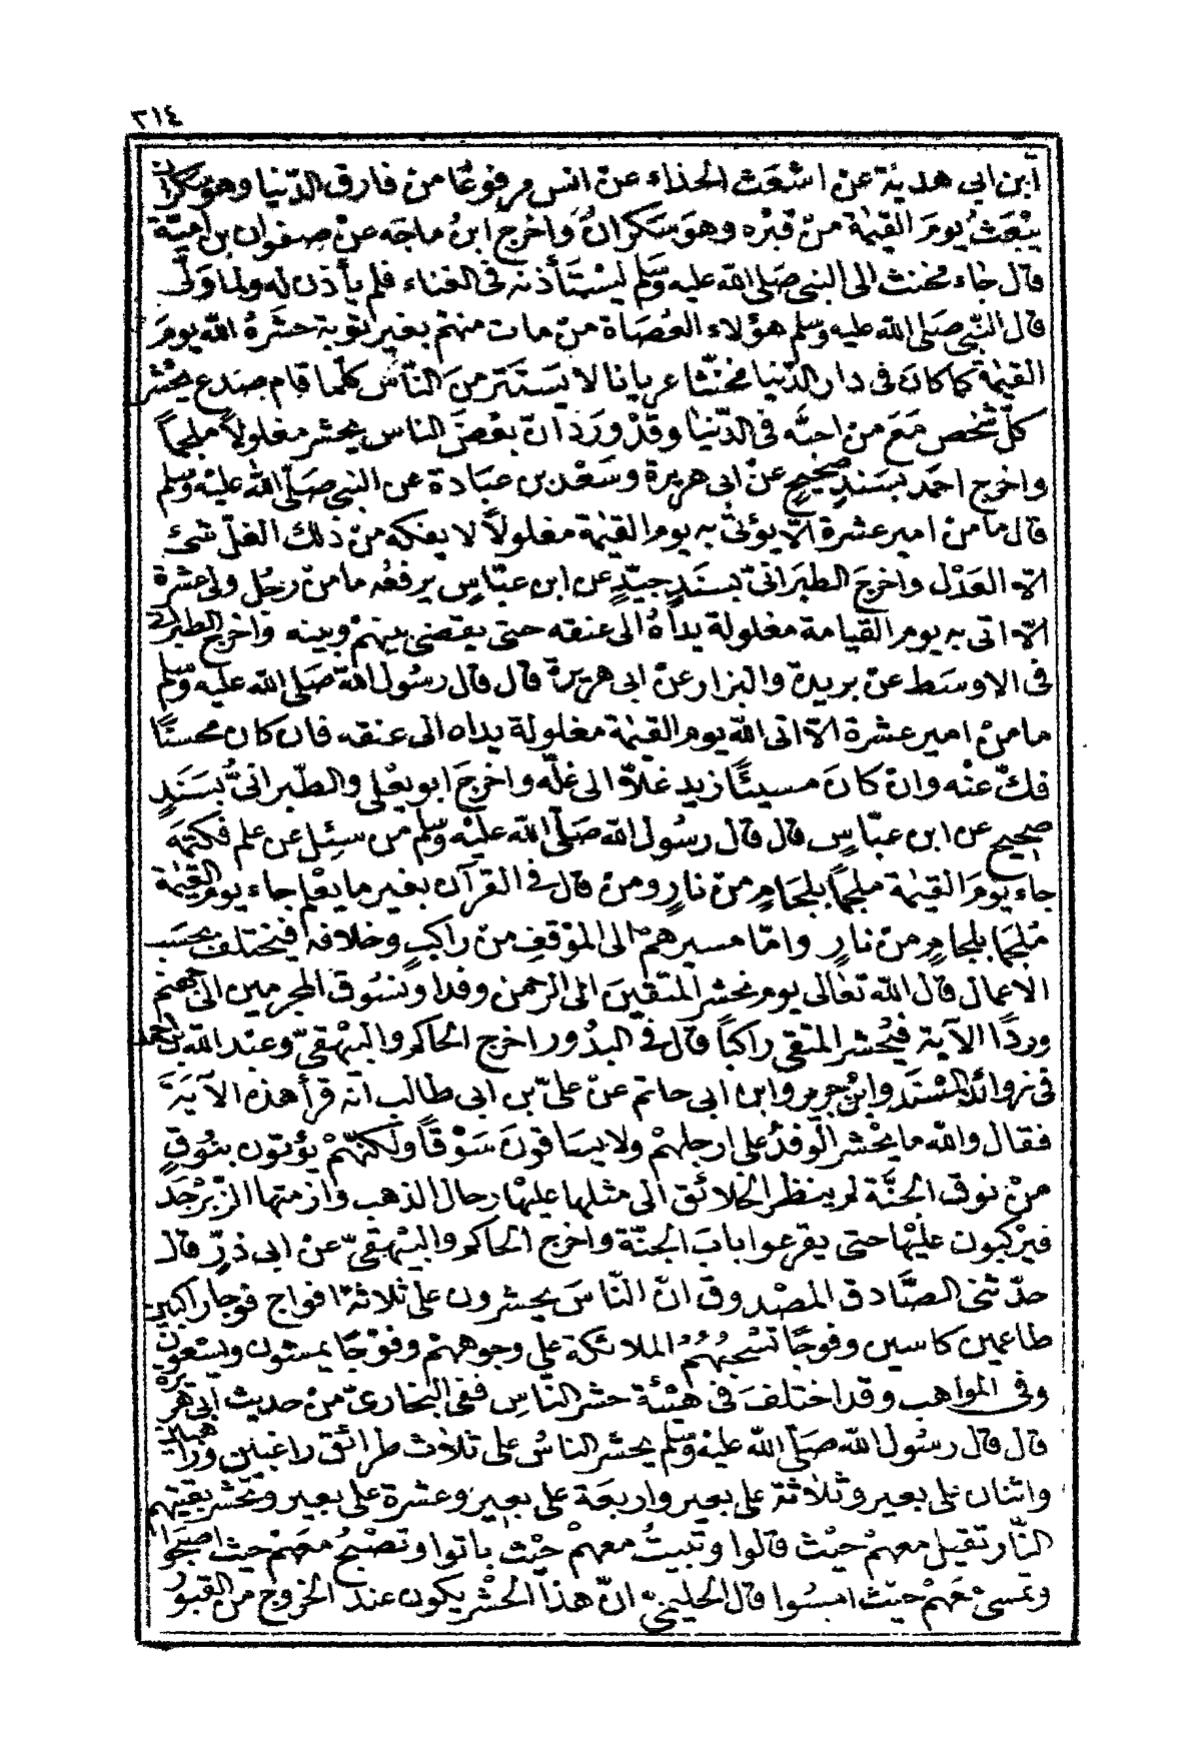 ٣١٤
ابن ابي هدية عن اشعث الحذاء عن انس مرفوعًا من فارق الدّنيا وهو سكران
يبْعَثُ يومَ القيٰمة منْ قبْره وهوَ سَكرانُ وَاخرجَ ابنُ ماجَه عنْ صفوان بن اميَّة
قال جاء مخنث الى النبى صَلى الله عليه وَسَلم ليسْتَأذنه فى الغناء فلم يأذن له ولما وَلّى
قال النَّبى صَلى الله عليه وسلم هؤلاء العُصَاة منْ مات منهمْ بغير توبة حشَرهُ الله يومَ
القيٰمة كما كانَ فى دار الدّنيا مخنّثا عريانا لا يسَتتر منَ النَّاس كلّما قام صُرع يحشر
كلّ شخص مَعَ من احبَّه فى الدّنيا وقدْ وَرَد انّ بعْضَ الناس يحشر مغلولًا ملجمًا
واخرج احمَد بسَندٍ صَحيحٍ عنْ ابى هريرة وسَعْد بن عبَادة عن النبى صَلّى الله عليْه وَسلم
قال ما من امير عشرة الّا يؤتىٰ به يوم القيٰمة مغلولًا لا يفكه منْ ذلك الغلّ شئ
الّا العَدْل واخرجَ الطبَرانىّ بسنَدٍ جيّدٍ عن ابن عبّاسٍ يرفعُه ما منْ رجُل ولى عشرة
الّا اتى به يوم القيامة مغلولة يداهُ الى عنقه حتى يقضى بينهمْ وبينه واخرج الطبرانى
فى الاوسَط عنْ بريدة والبزار عنْ ابى هريرة قال قال رسُول الله صَلى الله عليه وَسلم
ما منْ امير عشرة الّا اتى الله يوم القيٰمة مغلولة يداه الى عنقه فان كان محسنًا
فكّ عنْه وانْ كانَ مسيئًا زيد غلًّا الى غلّه واخرجَ ابو يعْلى والطّبرانىُّ بسَندٍ
صحيح عن ابن عبّاسٍ قال قال رسُول الله صَلّى الله عليْه وسلم من سئِل عن علم فكتمَه
جاء يومَ القيٰمة ملجمًا بلجَامٍ منْ نارٍ ومنْ قال فى القرآن بغير ما يعْلم جاء يوم القيٰمة
مُلجَمًا بلجامٍ منْ نارٍ وامّا مسيرهمْ الى المَوْقفِ منْ راكبٍ وخلافه فيختلف بحسَب
الاعمال قال الله تعَالى يوم نحشر المتقينَ الى الرحمن وفدا ونسُوق المجرمين الى جهنم
وردًا الآية فيُحشر المتقى راكبًا قال فى البدُور اخرج الحاكم والبيْهقىّ وعبْد الله بن احمد
فى زوائد المسْنَد وابنْ جرير وابنُ ابى حاتم عنْ علىّ بن ابى طالب انّه قرأ هذه الآيَة
فقال والله ما يحْشر الوفدُ على ارجلهمْ ولا يسَاقونَ سَوْقًا ولكنّهمْ يؤتون بنُوقٍ
منْ نوق الجنَّة لم ينظر الخلائق الى مثلها عليْها رحال الذهب وازمتها الزّبرْجَد
فيرْكبون عليْها حتى يقرعوا بابَ الجنَّة واخرج الحاكم والبيْهقىّ عنْ ابى ذرٍّ قال
حدّثنى الصَّادق المصْدوق انّ النّاسَ يحشرون على ثلاثة افواج فوجا راكبين
طاعمين كاسين وفوجًا تسْحبُهُمُ الملائكة على وجوههمْ وفوْجًا يمشون ويسْعونْ
وفى المواهب وقد اختلفَ فى هيْئة حشر النّاسِ ففى البخارىّ منْ حديث ابى هريرة
قال قال رسُول الله صَلّى الله عليْه وَسلم يحشر الناسُ على ثلاث طرائق راغبين وراهبين
واثنان على بعير وثلاثة على بعير واربعَة على بعِير وعشرة على بعير وتحْشر بقيّتهم
النّار تقيل معهمْ حيْث قالوا وتبيتُ معهمْ حيْث باتوا وتصْبحُ معَهمْ حيث اصبحُوا
وتمسىْ مَعَهمْ حيْث امسُوا قال الحليمىّ انّ هذا الحشْر يكون عند الخروج من القبُور